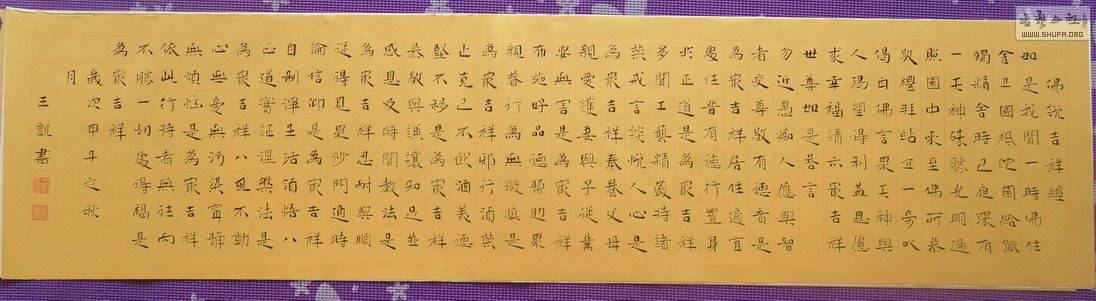 佛說吉祥經
如是我聞一時佛住
舍卫國祇陀園給孤
獨精舍時已夜深有
一天神殊勝光明遍
照園中來至佛所恭
敬禮拜站立一旁以
偈白佛言眾天神與
人渴望得利益思慮
求幸福請示最吉祥
世尊如是答言
勿近愚痴人應與智
者交尊敬有德者是
為最吉祥居住適宜
處往昔有德行置身
於正道是為最吉祥
多聞工藝精嚴持諸
禁戒言談悅人心是
為最吉祥奉養父母
親愛護妻與子從業
要無害是為最吉祥
布施好品德幫助眾
親眷行為無瑕疵是
為最吉祥邪行須禁
止克己不飲酒美德
堅不移是為最吉祥
恭敬與謙讓知足並
感恩及時聞教法是
為最吉祥忍耐與順
從得見眾沙門適時
論信仰是為最吉祥
自制淨生活領悟八
正道實證涅槃法是
為最吉祥八風不動
心無憂無污染寧靜
無煩惱是為最吉祥
依此行持者無往而
不勝一切處得福是
為最吉祥
歲次甲午之秋
月
王凱書
WWW.SHUFA.ORG